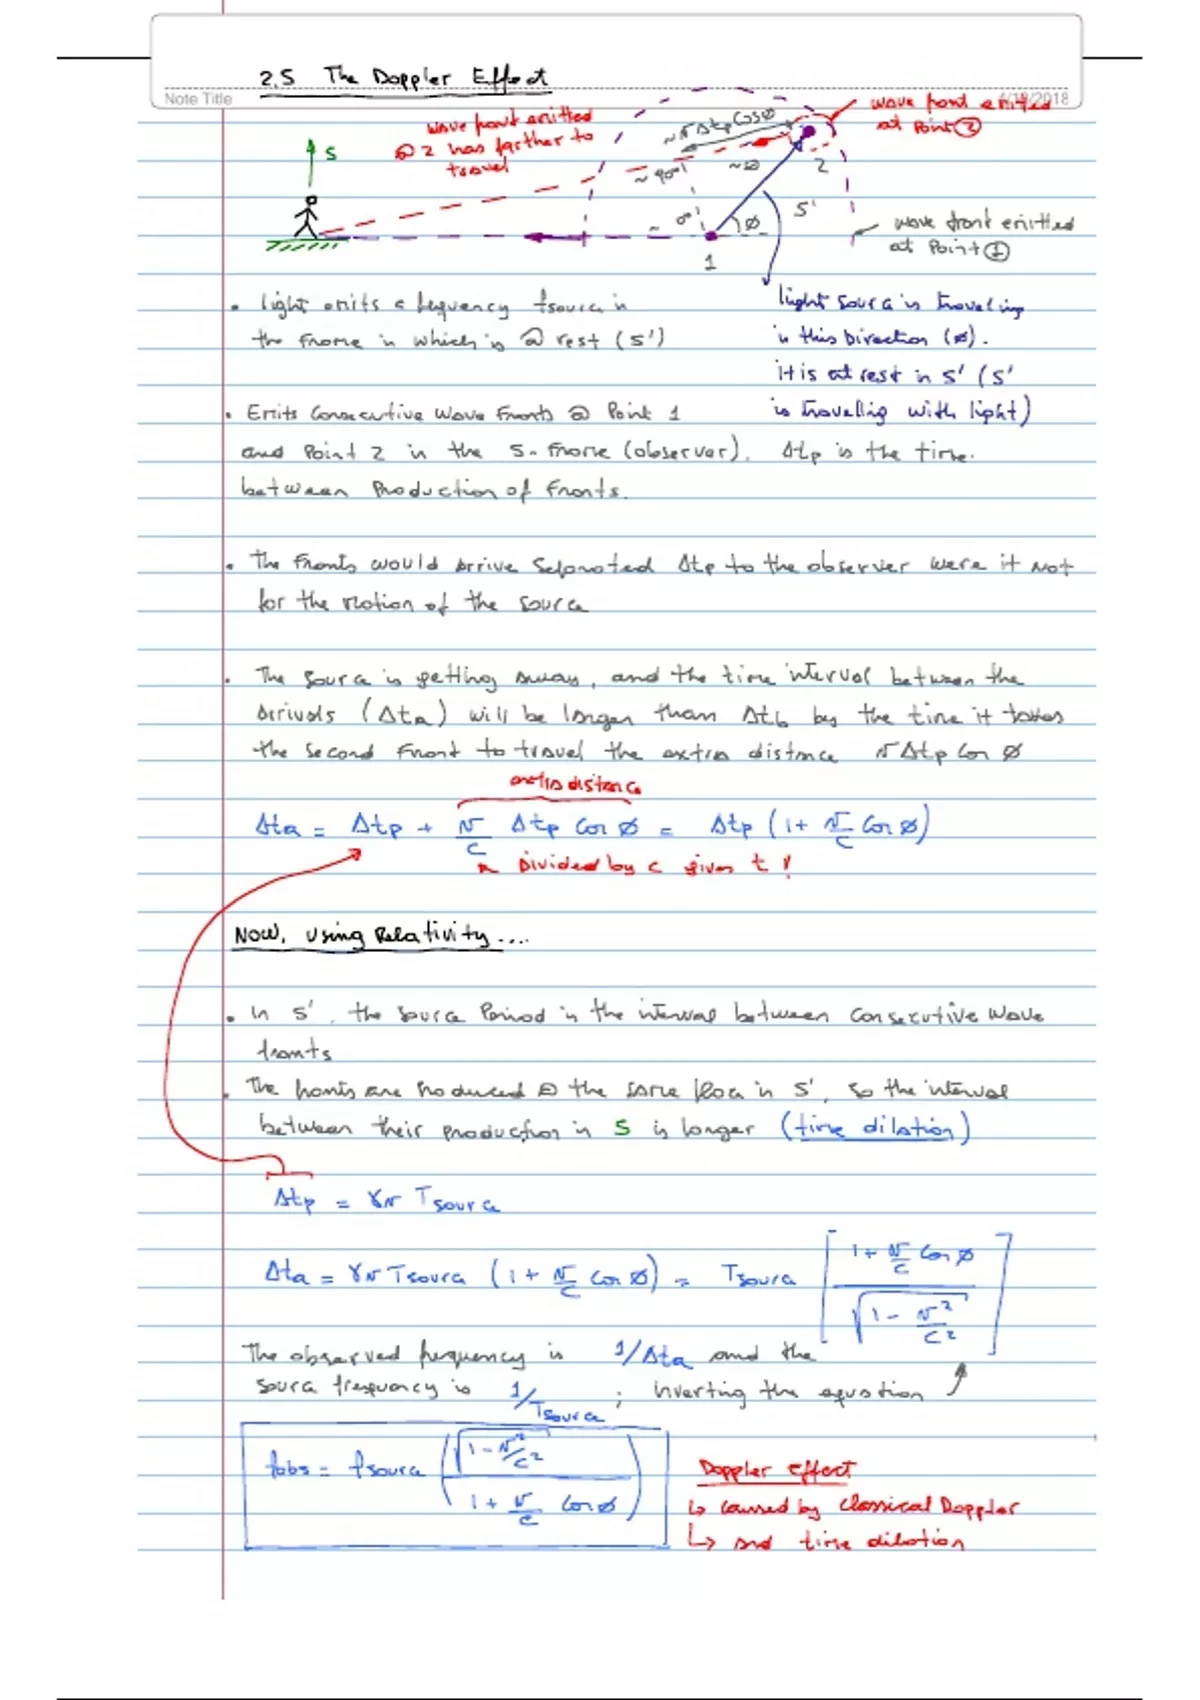 2.5 The Doppler Effect
Note Title
2018
wave front emitted
@ 2 has farther to
travel
~ v Δtp cos ø
wave front emitted
at Point ②
S
~ 90°
2
~ 0°
ø
S'
1
wave front emitted
at Point ①
• Light emits a frequency fsource in
the Frame in which is @ rest (S')
light source is traveling
in this Direction (ø).
it is at rest in S' (S'
is travelling with light)
• Emits Consecutive Wave Fronts @ Point 1
and Point 2 in the S-Frame (observer). Δtp is the time
between Production of Fronts.
• The Fronts would arrive Separated Δtp to the observer were it not
for the motion of the source
• The source is getting away, and the time interval between the
arrivals (Δta) will be longer than Δtb by the time it takes
the second Front to travel the extra distance v Δtp cos ø
extra distance
Δta = Δtp + v/c Δtp cos ø = Δtp (1 + v/c cos ø)
Divided by c gives t !
Now, Using Relativity....
• In S', the source Period is the interval between consecutive Wave
fronts
• The fronts are Produced @ the same place in S', so the interval
between their production in S is longer (time dilation)
Δtp = γv Tsource
Δta = γv Tsource (1 + v/c cos ø) = Tsource [(1 + v/c cos ø) / √(1 - v²/c²)]
The observed frequency is 1/Δta and the
source frequency is 1/Tsource ; Inverting the equation
fobs = fsource (√(1 - v²/c²) / (1 + v/c cos ø))
Doppler effect
↳ caused by Classical Doppler
↳ and time dilation